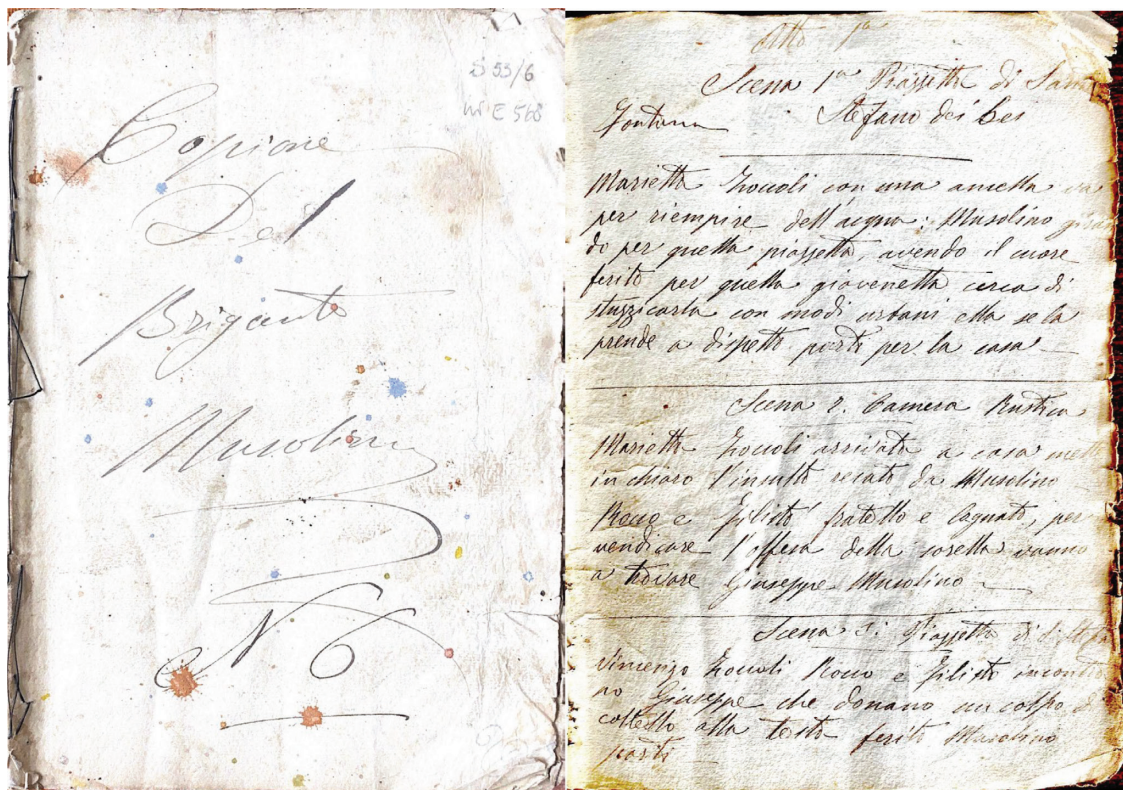 S 55/6
Copione
Del
Brigante
Musolino
N 6
Atto 1º
Scena 1ª Piazzetta di
Fontana Stefano dei
Marietta Zoccoli con una va
per riempire dell'acqua: Musolino
do per quella piazzetta, avendo il cuore
ferito per quella giovenetta cerca di
stuzzicarla con modi urbani ella se la
prende a dispetto parti per la casa
Scena 2. Camera Rustica
Marietta Zoccoli arrivata a casa mett
in chiaro l'insulto recato da Musolino
Rocco e Filisto fratello e Cagnato, per
vendicare l'offesa della sorella vanno
a trovare Giuseppe Musolino
Scena 3: Piazzetta di
Vincenzo Zoccoli Rocco e Filisto incontra
no Giuseppe che donano un colpo di
coltello alla testa ferito Musolino
parti